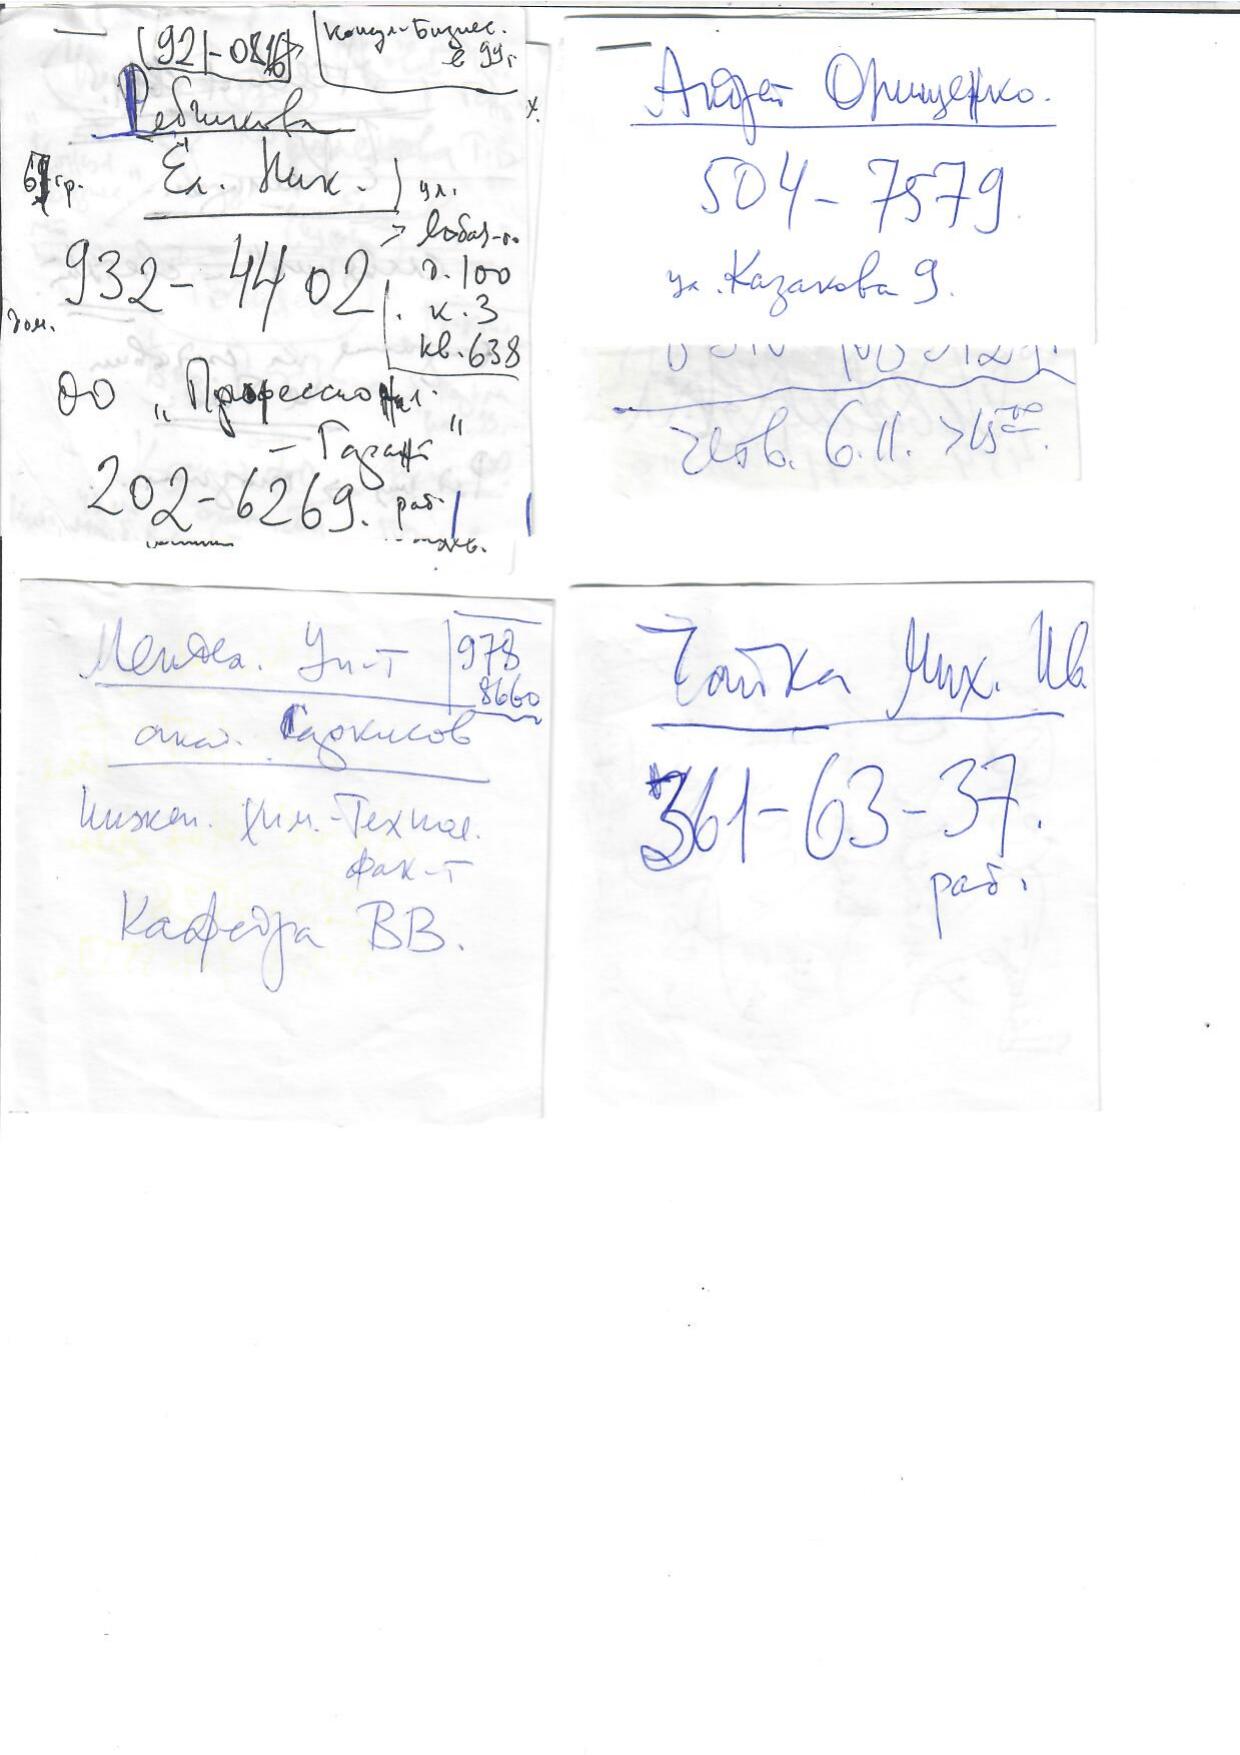 921-0816
Консул-Бизнес.
с 99г.
Ребчикова
Ел. Ник.
гр.
ул.
932-4402
д.100
к.3
кв.638
дом.
ОО "Профессионал.
- Гарант"
202-6269. раб.
Андрей Орищенко.
504-7579
ул. Казакова 9.
6.11. >15⁰⁰.
Мендел. Ун-т
978
8660
акад. Саркисов
Инжен. Хим.-Технол.
фак-т
Кафедра ВВ.
Чайка Мих. Ив.
361-63-37.
раб.